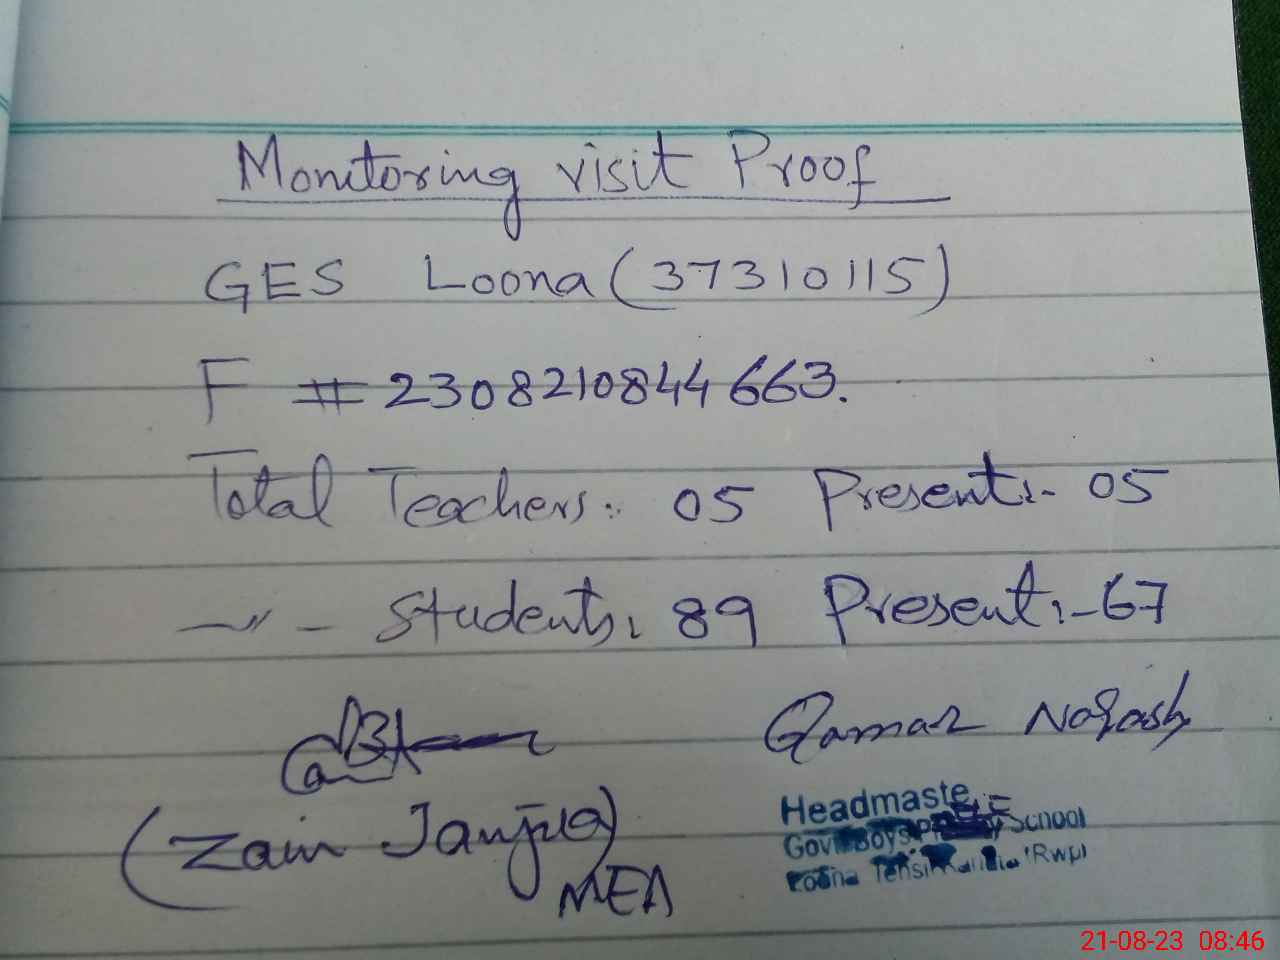 Monitoring visit Proof
GES Loona (37310115)
F # 2308210844663.
Total Teachers:. 05 Present:- 05
—〃— Students: 89 Present:- 67
Qamar
(Zain Janjua)
MEA
Headmaste
Govt Boys School
Loona Tehsil (Rwp)
21-08-23 08:46